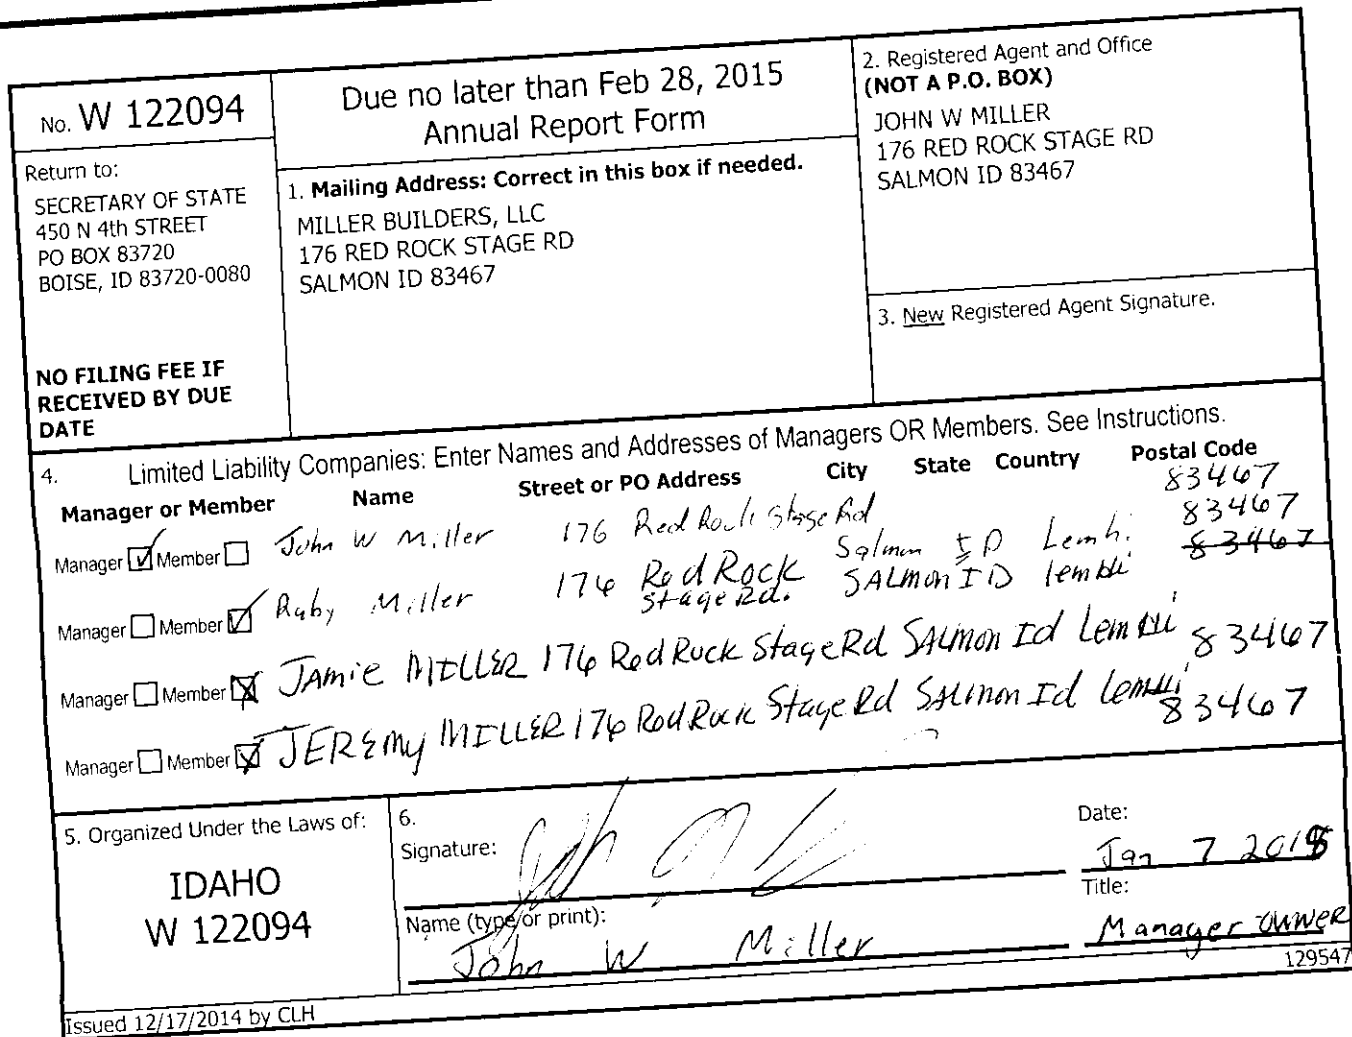 No. W 122094
Return to:
SECRETARY OF STATE
450 N 4th STREET
PO BOX 83720
BOISE, ID 83720-0080
NO FILING FEE IF
RECEIVED BY DUE
DATE
Due no later than Feb 28, 2015
Annual Report Form
1. Mailing Address: Correct in this box if needed.
MILLER BUILDERS, LLC
176 RED ROCK STAGE RD
SALMON ID 83467
2. Registered Agent and Office
(NOT A P.O. BOX)
JOHN W MILLER
176 RED ROCK STAGE RD
SALMON ID 83467
3. New Registered Agent Signature.
4. Limited Liability Companies: Enter Names and Addresses of Managers OR Members. See Instructions.
Manager or Member Name Street or PO Address City State Country Postal Code
83467
Manager Member John W Miller 176 Red Rock Stage Rd Salmon ID Lemhi 83467
83467
Manager Member Ruby Miller 176 Red Rock Stage Rd. SALMON ID lemhi
Manager Member JAMiE MILLER 176 Red Rock Stage Rd SALMON Id Lemhi 83467
Manager Member JEREmy MILLER 176 Red Rock Stage Rd SALMON Id Lemhi 83467
5. Organized Under the Laws of:
IDAHO
W 122094
6.
Signature:
Name (type or print):
John W Miller
Date:
Jan 7 2015
Title:
Manager OWNER
129547
Issued 12/17/2014 by CLH